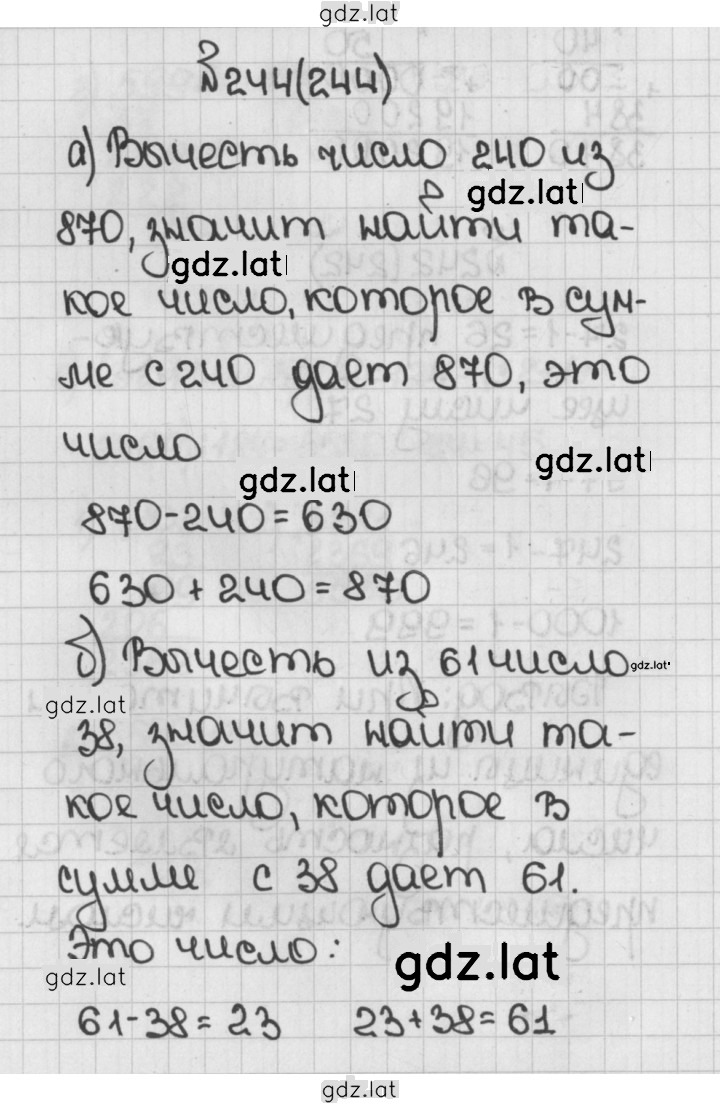 gdz.lat
№244(244)
а) Вычесть число 240 из
gdz.lat
870, значит найти та-
gdz.lat
кое число, которое в сум-
ме с 240 дает 870, это
число
gdz.lat
gdz.lat
870-240=630
630+240=870
б) Вычесть из 61 число
gdz.lat
gdz.lat
38, значит найти та-
кое число, которое в
сумме с 38 дает 61.
Это число:
gdz.lat
gdz.lat
61-38=23 23+38=61
gdz.lat